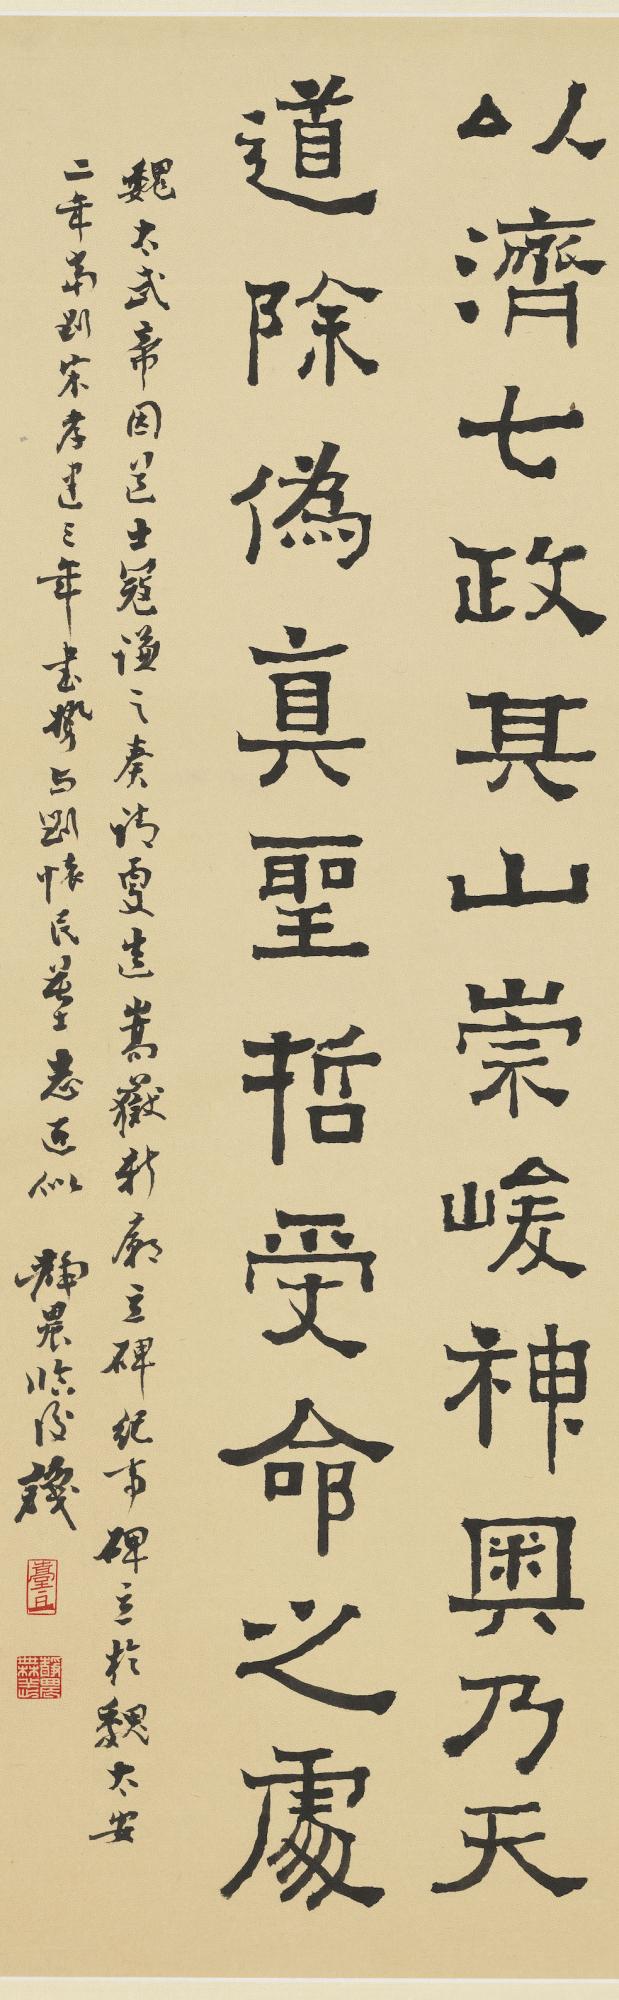 以濟七政其山崇峻神奧乃天
道除偽真聖哲受命之處
魏太武帝因道士寇謙之奏請更造嵩嶽新廟立碑紀事碑立於魏太安
二年當劉宋孝建三年書勢與劉懷民墓志近似　靜農臨後識
臺
靜農無恙